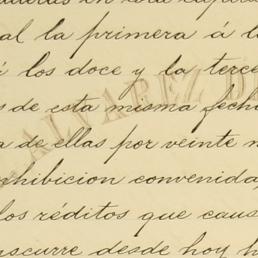 al la primera á l
los doce y la terce
s de esta misma fech
a de ellas por veinte
ALVAREZ D
hibicion convenida,
los réditos que caus
scurre desde hoy h